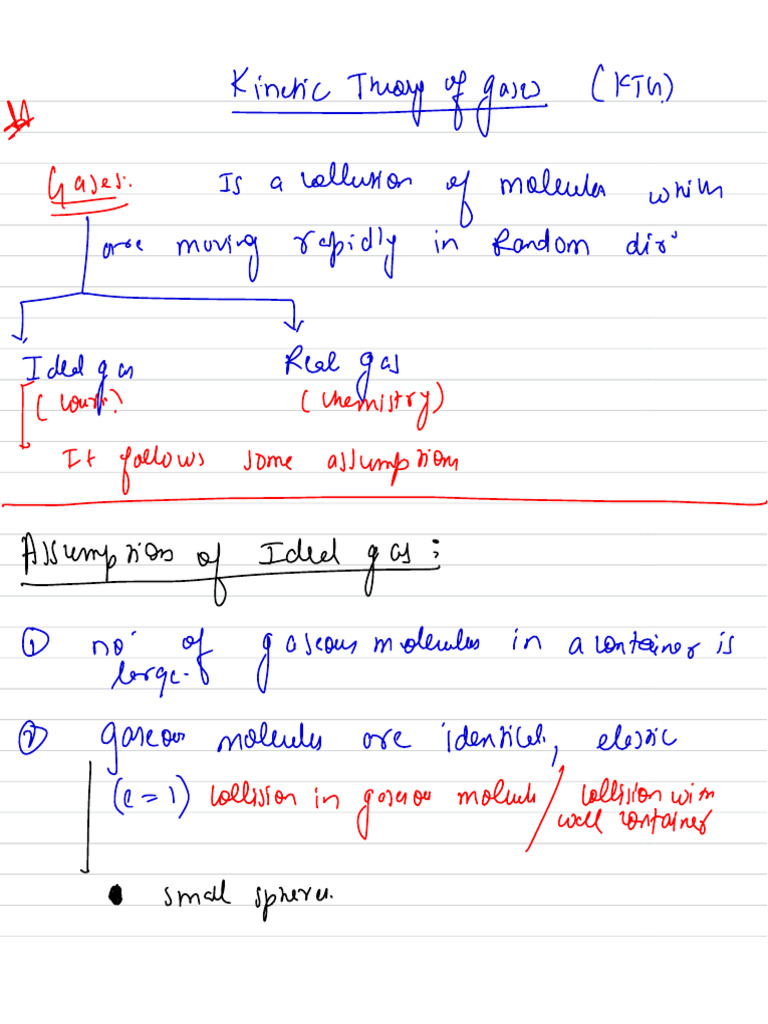 Kinetic Theory of gases (KTG)
Gases: Is a collusion of molecules which
are moving rapidly in Random dirⁿ
Ideal gas Real gas
( (Chemistry)
It follows some assumption
Assumption of Ideal gas:
① no. of gaseous molecules in a container is
large.
② gaseous molecules are identical, elastic
(e=1) collision in gaseous molecule / collision with
wall container
• small spheres.